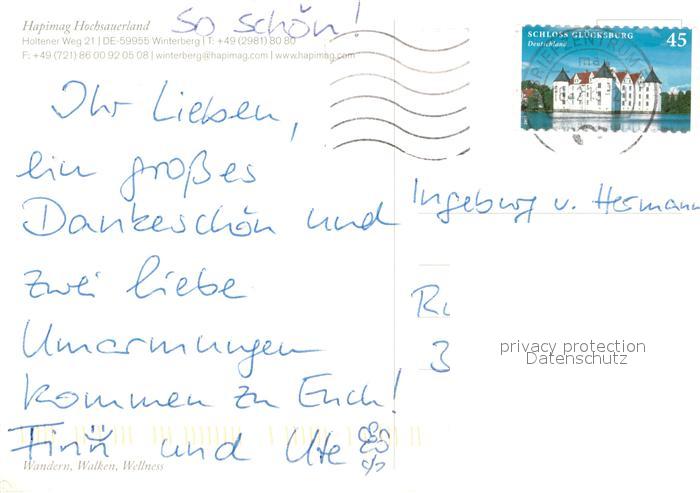 So schön!
Hapimag Hochsauerland
Holtener Weg 21 | DE-59955 Winterberg | T: +49 (2981) 80 80
F: +49 (721) 86 00 92 05 08 | winterberg@hapimag.com | www.hapimag.com
Ihr Lieben,
ein großes
Dankeschön und
zwei liebe
Umarmungen
kommen zu Euch!
Finn und Ute
Wandern, Walken, Wellness
SCHLOSS GLÜCKSBURG 45
Deutschland
BRIEFZENTRUM
Ingeburg v. Hermann
3
privacy protection
Datenschutz